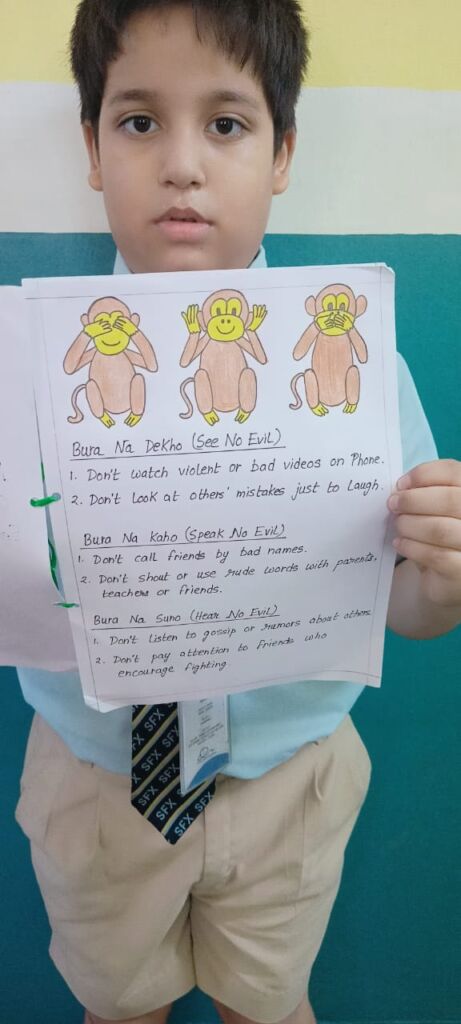 Bura Na Dekho (See No Evil)
1. Don't watch violent or bad videos on Phone.
2. Don't look at others' mistakes just to laugh.
Bura Na Kaho (Speak No Evil)
1. Don't call friends by bad names.
2. Don't shout or use rude words with parents,
teachers or friends.
Bura Na Suno (Hear No Evil)
1. Don't listen to gossip or rumors about others.
2. Don't pay attention to friends who
encourage fighting
SFX SFX
SFX SFX
SFX SFX
SFX